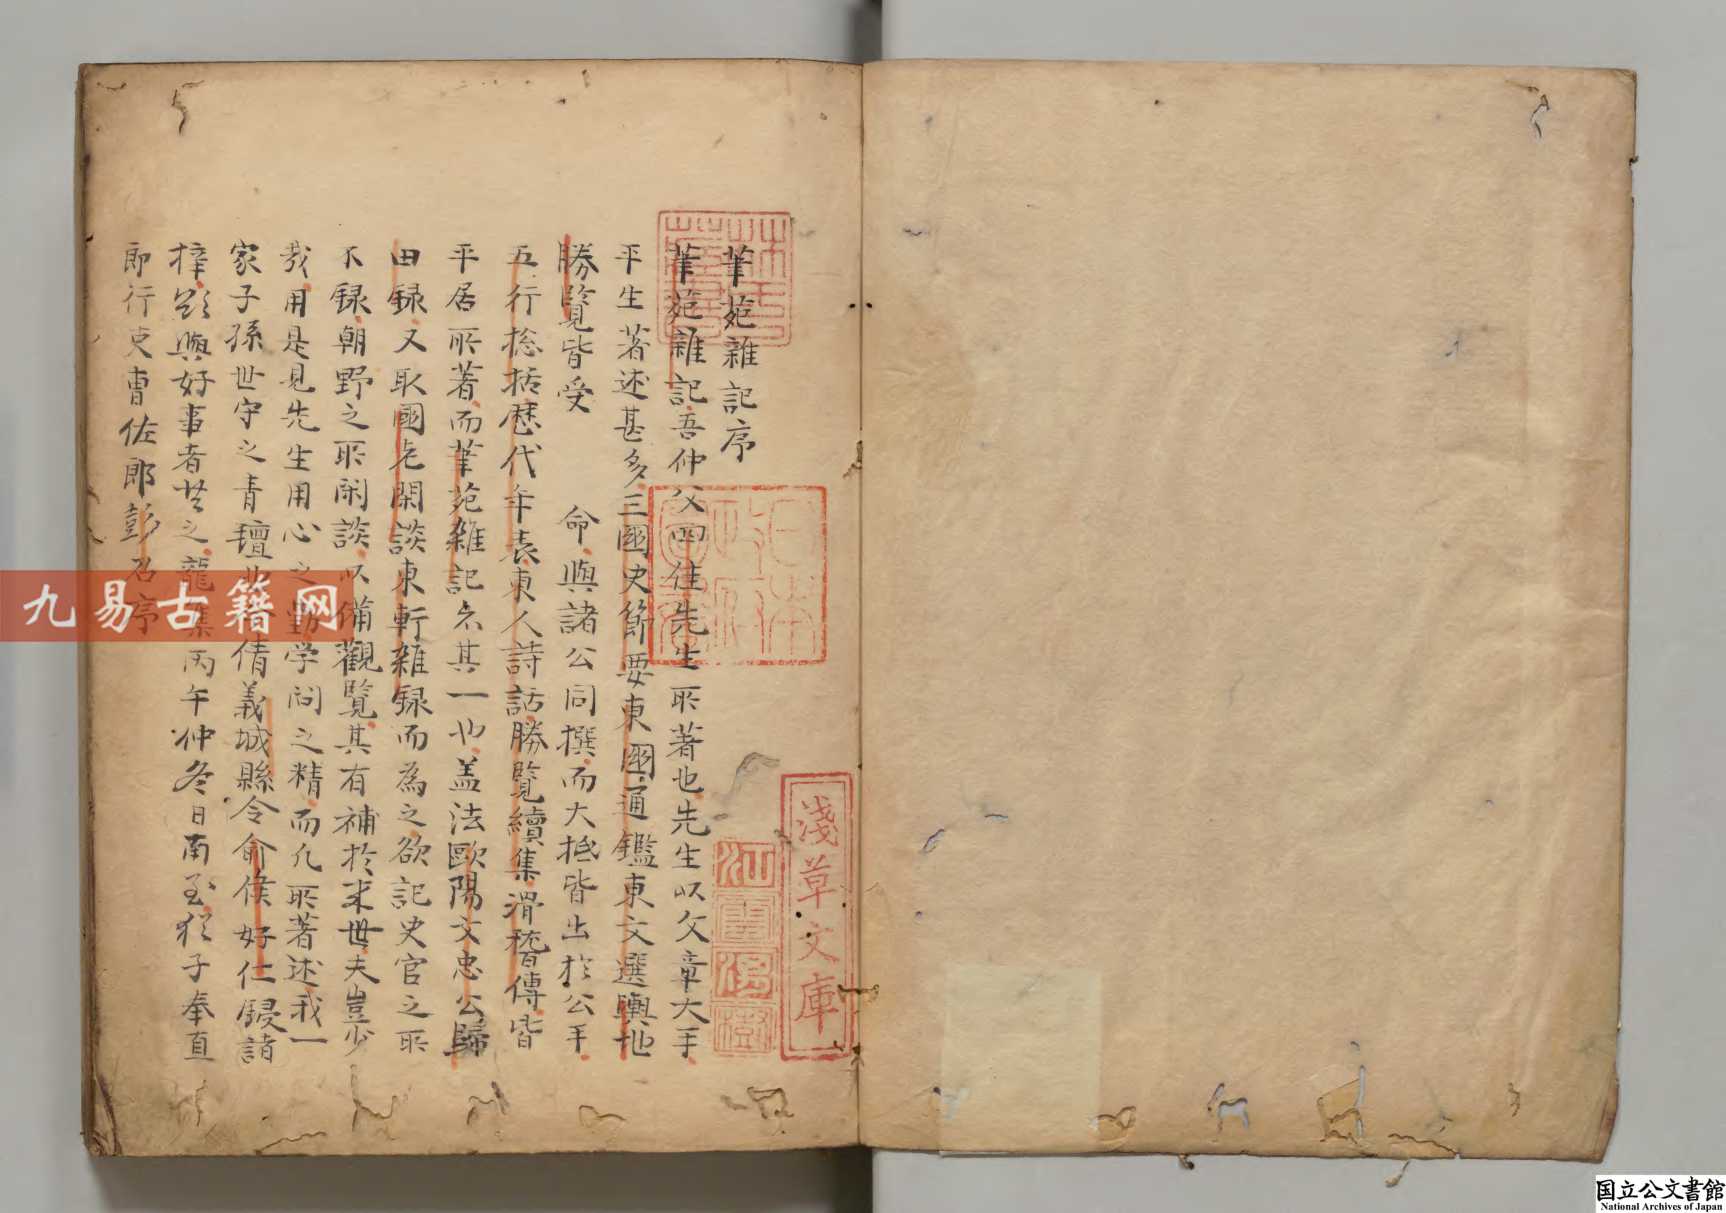 筆苑雜記序
筆苑雜記吾仲父四佳先生所著也先生以文章大手
平生著述甚多三國史節要東國通鑑東文選輿地
勝覽皆受 命與諸公同撰而大抵皆出於公手
五行摠括歷代年表東人詩話勝覽續集滑稽傳皆
平居所著而筆苑雜記亦其一也盖法歐陽文忠公歸
田録又取國老閑談東軒雜録而為之欲記史官之所
不録朝野之所閑談以備觀覽其有補於来世夫豈少
㢤用是見先生用心之勤学问之精而凡所著述我一
家子孫世守之青氊也今倩義城縣令俞侯好仁鋟諸
梓欲與好事者共之龍集丙午仲冬日南至猶子奉直
郎行吏曹佐郎彭召序
日本政府圖書
淺草文庫
江雲渭樹
林氏藏書
九易古籍网
国立公文書館
National Archives of Japan